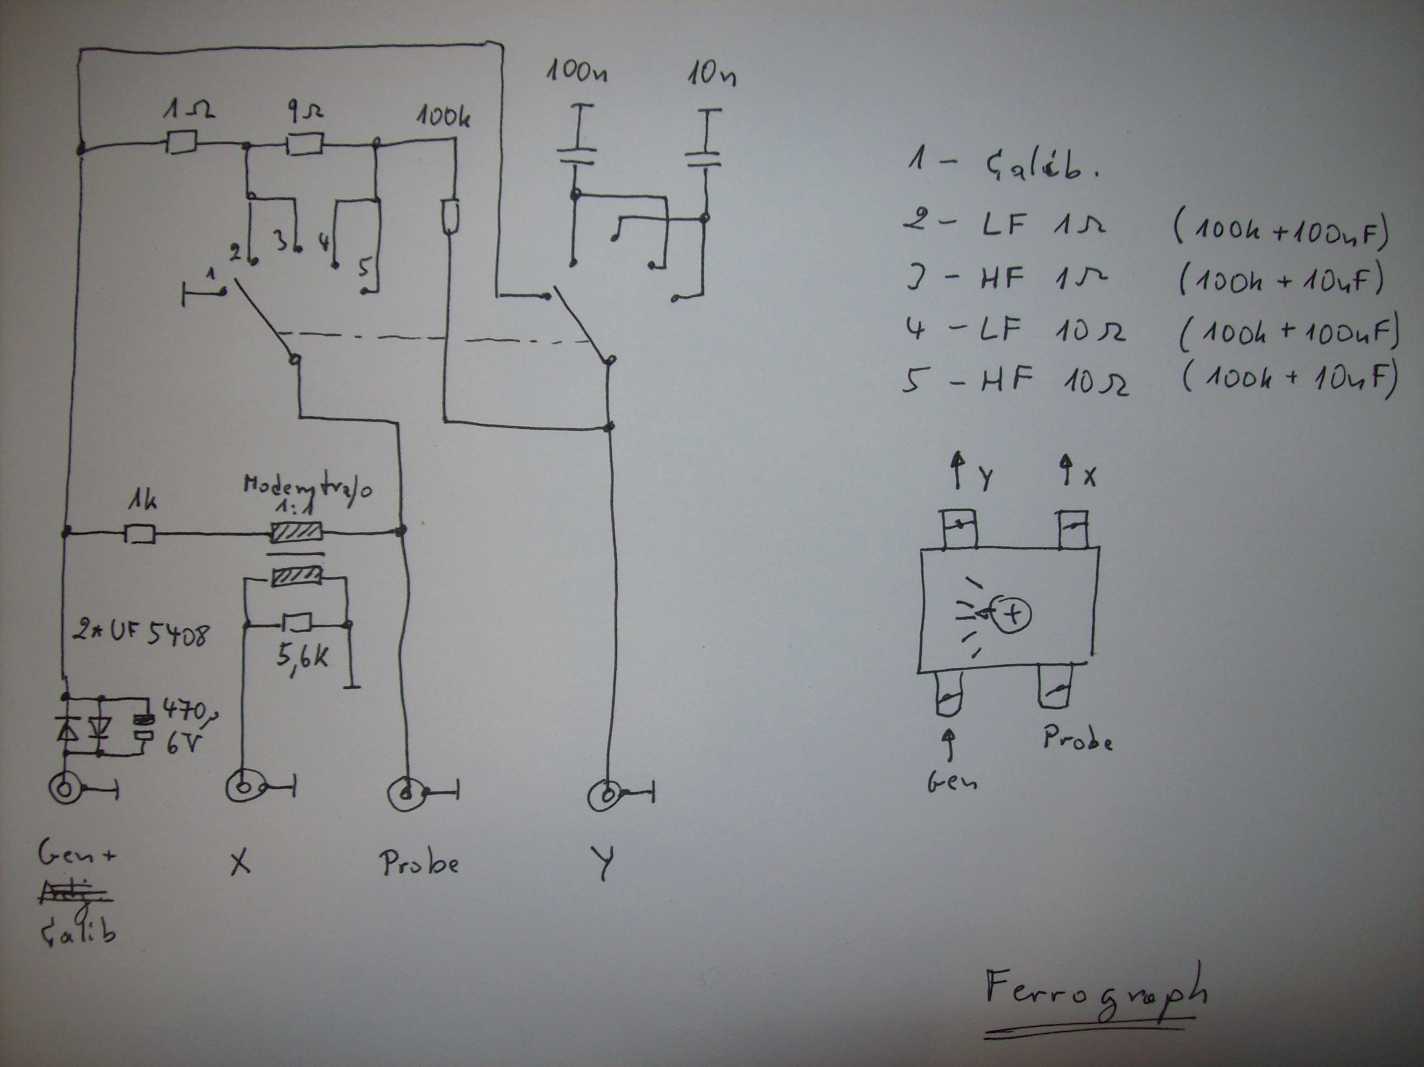 100n 10n
1Ω 9Ω 100k
1 2 3 4 5
1 - Calib.
2 - LF 1Ω (100k + 100nF)
3 - HF 1Ω (100k + 10nF)
4 - LF 10Ω (100k + 100nF)
5 - HF 10Ω (100k + 10nF)
1k
Modemtrafo
1:1
2* UF 5408
5,6K
470µ
6V
Gen+
Calib
X
Probe
Y
Y X
Gen
Probe
Ferrograph